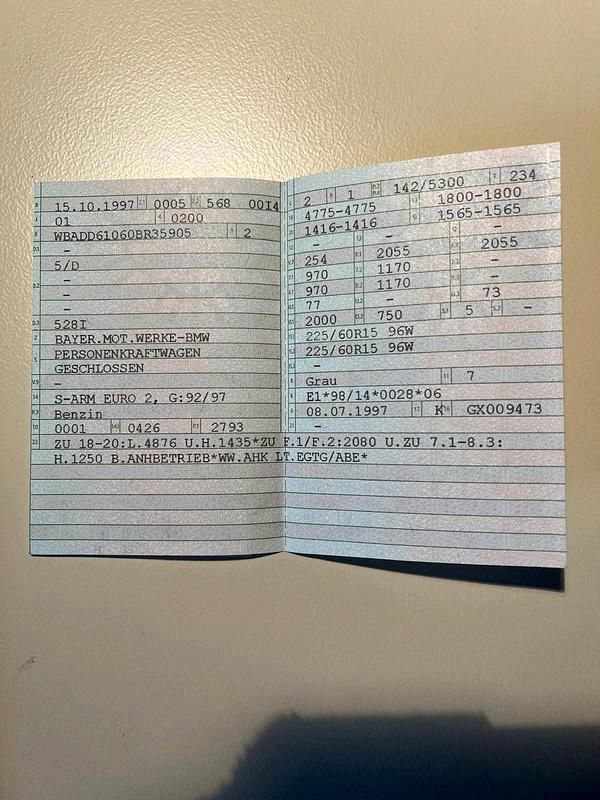 15.10.1997 0005 568 00I4
01 0200
WBADD61060BR35905 2
-
5/D
-
-
-
528I
BAYER.MOT.WERKE-BMW
PERSONENKRAFTWAGEN
GESCHLOSSEN
-
S-ARM EURO 2, G:92/97
Benzin
0001 0426 2793
2 1 142/5300 234
4775-4775 1800-1800
1416-1416 1565-1565
- - -
254 2055 2055
970 1170 -
970 1170 -
77 - 73
2000 750 5 -
225/60R15 96W
225/60R15 96W
-
Grau 7
E1*98/14*0028*06
08.07.1997 K GX009473
-
22 ZU 18-20:L.4876 U.H.1435*ZU F.1/F.2:2080 U.ZU 7.1-8.3:
H.1250 B.ANHBETRIEB*WW.AHK LT.EGTG/ABE*